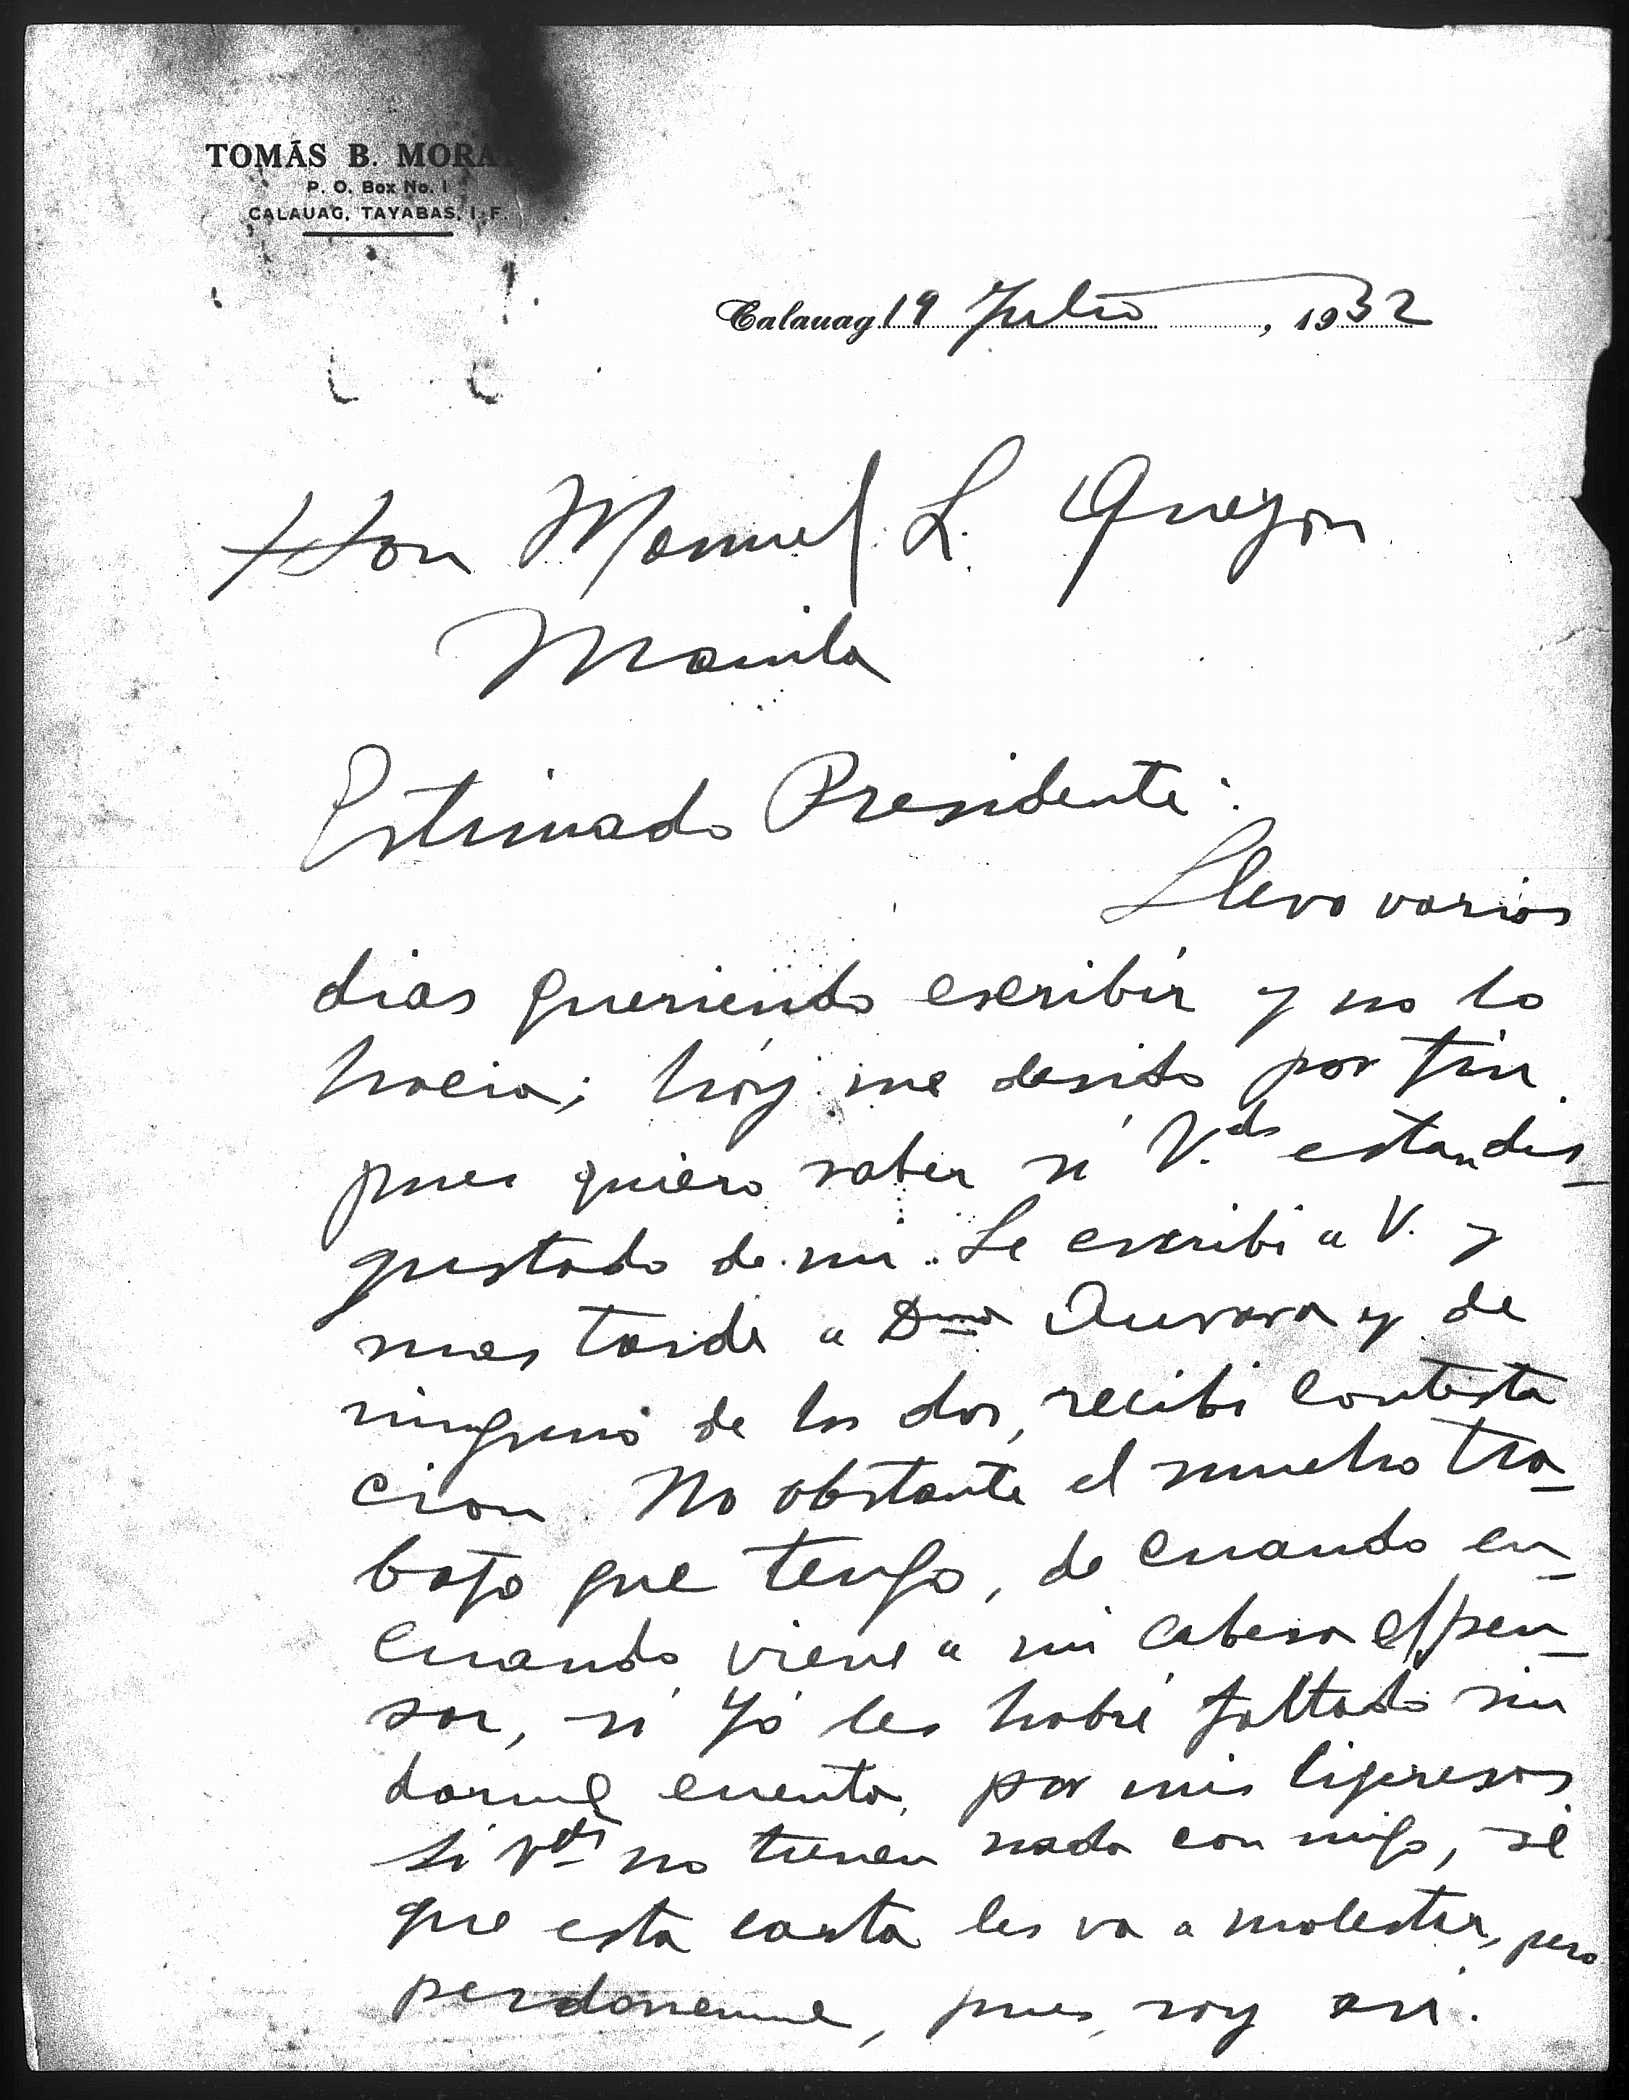 TOMÁS B. MORA
P. O. Box No. 1
CALAUAG, TAYABAS, I. F.
Calauag 19 Julio, 1932
Hon Manuel L. Quezon
Manila
Estimado Presidente:
Llevo varios
dias queriendo escribir y no lo
hacia; hoy me desido por fin
pues quiero saber si V.ds estan dis-
gustado de mi. Le escribi a V. y
mas tarde a Dña Aurora y de
ninguno de los dos, recibi contesta
cion No obstante el mucho tra-
bajo que tengo, de cuando en-
cuando viene a mi cabesa el pen-
sar, si yo les habré faltado sin
darme cuenta, por mis ligeresas
si Vds no tienen nada con migo, sé
que esta carta les va a molestar, pero
perdonenme, pues, soy asi.